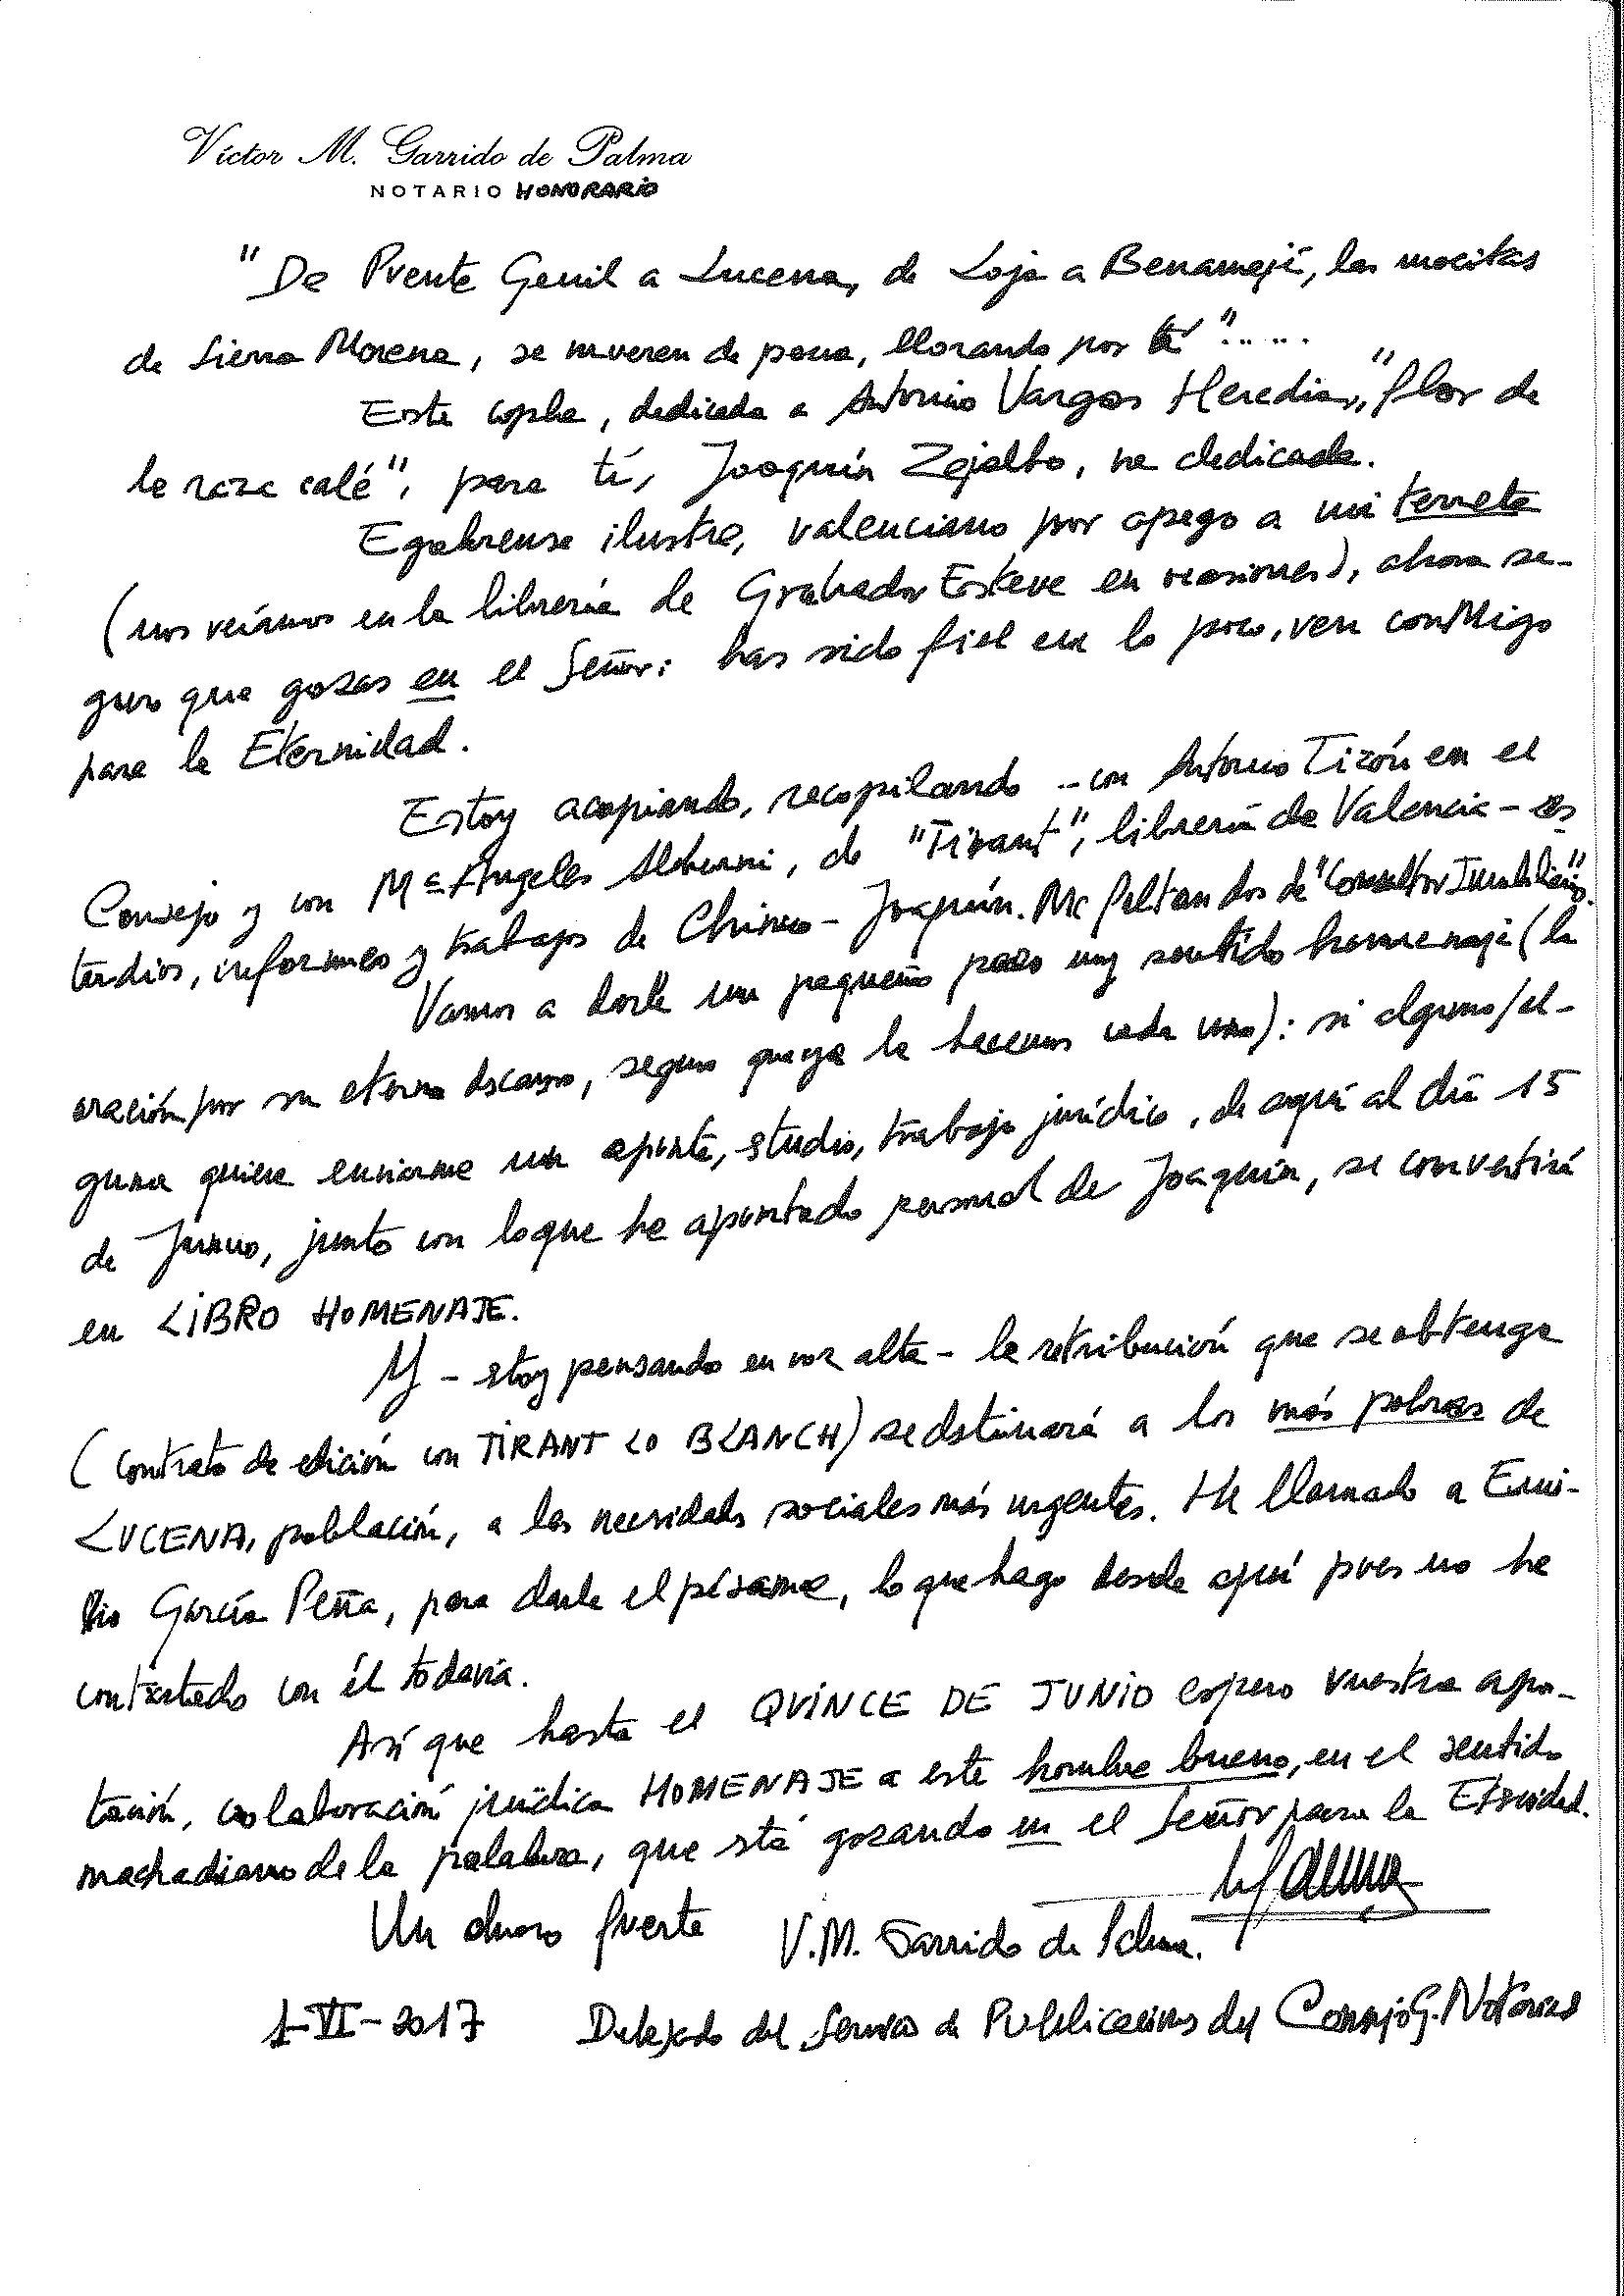 Víctor M. Garrido de Palma
NOTARIO HONORARIO
"De Puente Genil a Lucena, de Loja a Benamejí, las mocitas
de Sierra Morena, se mueren de pena, llorando por tí".....
Este copla, dedicada a Antonio Vargas Heredia, "flor de
la raza calé", para tí, Joaquín Zejalbo, va dedicada.
Egabrense ilustre, valenciano por apego a mi terreta
(nos veíamos en la librería de Grabador Esteve en ocasiones), ahora se-
guro que gozas en el Señor: has sido fiel en lo poco, ven conMigo
para la Eternidad.
Estoy acopiando, recopilando - con Antonio Tizón en el
Consejo y con Mª Angeles, de "Tirant", librería de Valencia - es
tudios, informes y trabajos de Chimo - Joaquín. Me faltan los de "Consultor Inmobiliario".
Vamos a darle un pequeño pero muy sentido homenaje (la
oración por su eterno descanso, seguro que ya la hacemos cada uno): si alguno/al-
guna quiere enviarme un aporte, studio, trabajo jurídico, de aquí al día 15
de Junio, junto con lo que he apuntado personal de Joaquín, se convertirá
en LIBRO HOMENAJE.
Y - stoy pensando en voz alta - la retribución que se obtenga
(contrato de edición con TIRANT LO BLANCH) se dstinará a los más pobres de
LUCENA, población, a las necesidads sociales más urgentes. He llamado a Emi-
lio García Peña, para darle el pésame, lo que hago desde aquí pues no he
contactado con él todavía.
Así que hasta el QUINCE DE JUNIO espero vuestra apor-
tación, colaboración jurídica HOMENAJE a este hombre bueno, en el sentido
machadiano de la palabra, que stá gozando en el Señor para la Eternidad.
Un abrazo fuerte V.M. Garrido de Palma.
1-VI-2017 Delegado del Servicio de Publicaciones del Consejo G. Notariado